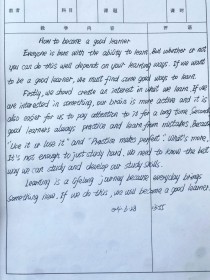 How to become a good learner
Everyone is born with the ability to learn. But whether or not
you can do this well depends on your learning ways. If we want
to be a good learner, we must find some good ways to learn.
Firstly, we should create an interest in what we learn. If we
are interested in something, our brain is more active and it is
also easier for us to pay attention to it for a long time. Second
good learners always practice and learn from mistakes. Because
"Use it or lose it" and "Practice makes perfect". What's more,
It's not enough to just study hard, we need to know the best
way we can study and develop our study skills.
Learning is a lifelong journey because everyday brings
something new. If we do this, we will become a good learner.